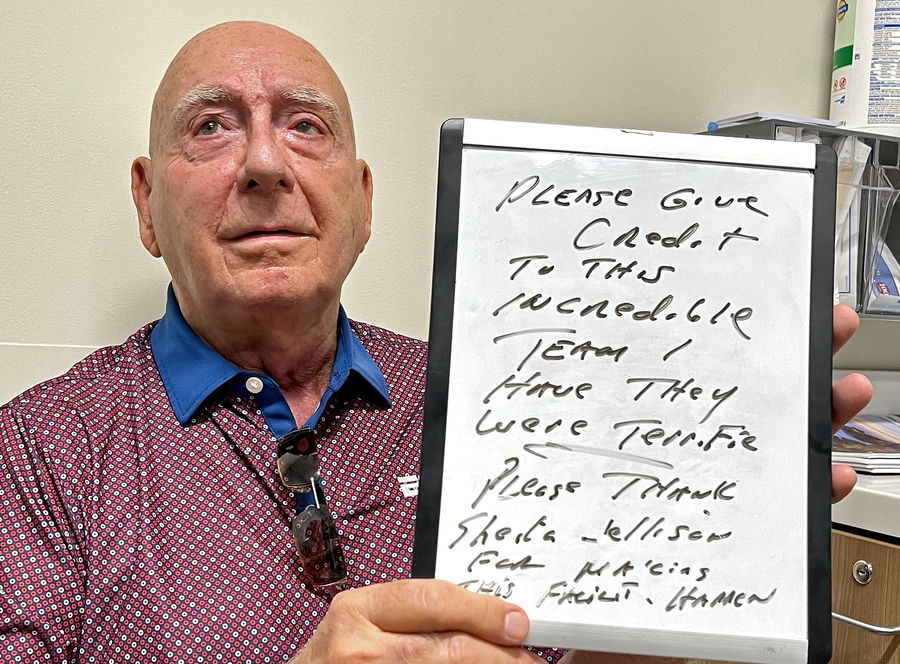 PLEASE GIVE
Credit
To THIS
INCRedible
TEAM I
HAVE THey
were TerriFic
Please THANK
Sheila Jellison
FOR MAKING
THIS FACILIT. HAPPEN